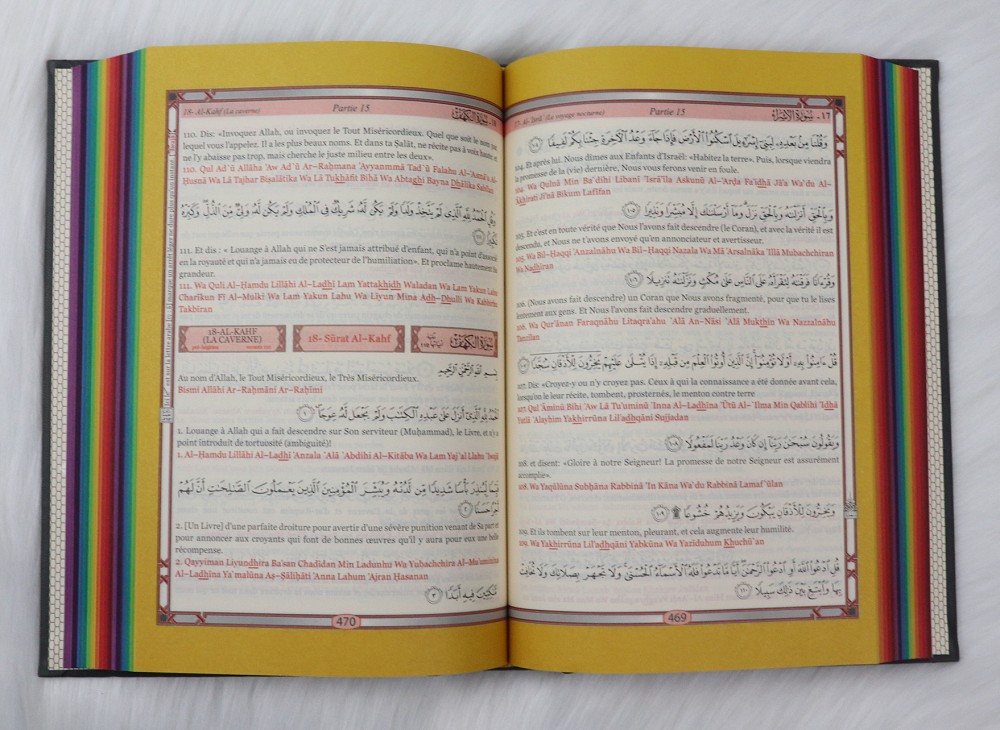 17- Al-'Isrā' (Le voyage nocturne) Partie 15 سورة الإسراء - 17
وَقُلْنَا مِنْ بَعْدِهِ لِبَنِي إِسْرَائِيلَ اسْكُنُوا الْأَرْضَ فَإِذَا جَاءَ وَعْدُ الْآخِرَةِ جِئْنَا بِكُمْ لَفِيفًا ١٠٤
104. Et après lui. Nous dîmes aux Enfants d'Israël: «Habitez la terre». Puis, lorsque viendra
la promesse de la (vie) dernière, Nous vous ferons venir en foule.
104. Wa Qulnā Min Ba`dihi Libanī 'Isrā'īla Askunū Al-'Arđa Fa'idhā Jā'a Wa`du Al-
'Ākhirati Ji'nā Bikum Lafīfan
وَبِالْحَقِّ أَنْزَلْنَاهُ وَبِالْحَقِّ نَزَلَ وَمَا أَرْسَلْنَاكَ إِلَّا مُبَشِّرًا وَنَذِيرًا ١٠٥
105. Et c'est en toute vérité que Nous l'avons fait descendre (le Coran), et avec la vérité il est
descendu, et Nous ne t'avons envoyé qu'en annonciateur et avertisseur.
105. Wa Bil-Haqqi 'Anzalnāhu Wa Bil-Haqqi Nazala Wa Mā 'Arsalnāka 'Illā Mubachchiran
Wa Nadhīran
وَقُرْآنًا فَرَقْنَاهُ لِتَقْرَأَهُ عَلَى النَّاسِ عَلَى مُكْثٍ وَنَزَّلْنَاهُ تَنْزِيلًا ١٠٦
106. (Nous avons fait descendre) un Coran que Nous avons fragmenté, pour que tu le lises
lentement aux gens. Et Nous l'avons fait descendre graduellement.
106. Wa Qur'ānan Faraqnāhu Litaqra'ahu `Alá An-Nāsi `Alá Mukthin Wa Nazzalnāhu
Tanzīlan
قُلْ آمِنُوا بِهِ أَوْ لَا تُؤْمِنُوا إِنَّ الَّذِينَ أُوتُوا الْعِلْمَ مِنْ قَبْلِهِ إِذَا يُتْلَى عَلَيْهِمْ يَخِرُّونَ لِلْأَذْقَانِ سُجَّدًا ١٠٧
107. Dis: «Croyez-y ou n'y croyez pas. Ceux à qui la connaissance a été donnée avant cela,
lorsqu'on leur récite, tombent, prosternés, le menton contre terre
107. Qul 'Āminū Bihi 'Aw Lā Tu'uminū 'Inna Al-Ladhīna 'Ūtū Al-`Ilma Min Qablihi 'Idhā
Yutlá `Alayhim Yakhirrūna Lil'adhqāni Sujjadan
وَيَقُولُونَ سُبْحَانَ رَبِّنَا إِنْ كَانَ وَعْدُ رَبِّنَا لَمَفْعُولًا ١٠٨
108. et disent: «Gloire à notre Seigneur! La promesse de notre Seigneur est assurément
accomplie».
108. Wa Yaqūlūna Subḥāna Rabbinā 'In Kāna Wa`du Rabbinā Lamaf`ūlan
وَيَخِرُّونَ لِلْأَذْقَانِ يَبْكُونَ وَيَزِيدُهُمْ خُشُوعًا ١٠٩
109. Et ils tombent sur leur menton, pleurant, et cela augmente leur humilité.
109. Wa Yakhirrūna Lil'adhqāni Yabkūna Wa Yazīduhum Khuchū`an
قُلِ ادْعُوا اللَّهَ أَوِ ادْعُوا الرَّحْمَنَ أَيًّا مَا تَدْعُوا فَلَهُ الْأَسْمَاءُ الْحُسْنَى وَلَا تَجْهَرْ بِصَلَاتِكَ وَلَا تُخَافِتْ
بِهَا وَابْتَغِ بَيْنَ ذَلِكَ سَبِيلًا ١١٠
469
18- Al-Kahf (La caverne) Partie 15 سورة الكهف
110. Dis: «Invoquez Allah, ou invoquez le Tout Miséricordieux. Quel que soit le nom par
lequel vous l'appelez. Il a les plus beaux noms. Et dans ta Ṣalāt, ne récite pas à voix haute; et
ne l'y abaisse pas trop, mais cherche le juste milieu entre les deux».
110. Qul Ad`ū Allāha 'Aw Ad`ū Ar-Raḥmana 'Ayyanmmā Tad`ū Falahu Al-'Asmā'u Al-
Ḥusná Wa Lā Tajhar Biṣalātika Wa Lā Tukhāfit Bihā Wa Abtaghi Bayna Dhālika Sabīlan
وَقُلِ الْحَمْدُ لِلَّهِ الَّذِي لَمْ يَتَّخِذْ وَلَدًا وَلَمْ يَكُنْ لَهُ شَرِيكٌ فِي الْمُلْكِ وَلَمْ يَكُنْ لَهُ وَلِيٌّ مِنَ الذُّلِّ وَكَبِّرْهُ
تَكْبِيرًا ١١١
111. Et dis : « Louange à Allah qui ne S'est jamais attribué d'enfant, qui n'a point d'associé
en la royauté et qui n'a jamais eu de protecteur de l'humiliation». Et proclame hautement Sa
grandeur.
111. Wa Quli Al-Ḥamdu Lillāhi Al-Ladhī Lam Yattakhidh Waladan Wa Lam Yakun Lahu
Charīkun Fī Al-Mulki Wa Lam Yakun Lahu Wa Līyun Mina Adh-Dhulli Wa Kabbirhu
Takbīran
18-AL-KAHF
(LA CAVERNE)
18- Sūrat Al-Kahf
سورة الكهف
Au nom d'Allah, le Tout Miséricordieux, le Très Miséricordieux. بِسْمِ اللَّهِ الرَّحْمَنِ الرَّحِيمِ
Bismi Allāhi Ar-Raḥmāni Ar-Raḥīmi
الْحَمْدُ لِلَّهِ الَّذِي أَنْزَلَ عَلَى عَبْدِهِ الْكِتَابَ وَلَمْ يَجْعَلْ لَهُ عِوَجًا ١
1. Louange à Allah qui a fait descendre sur Son serviteur (Muḥammad), le Livre, et n'y a
point introduit de tortuosité (ambiguïté)!
1. Al-Ḥamdu Lillāhi Al-Ladhī 'Anzala `Alá `Abdihi Al-Kitāba Wa Lam Yaj`al Llahu `Iwajā
قَيِّمًا لِيُنْذِرَ بَأْسًا شَدِيدًا مِنْ لَدُنْهُ وَيُبَشِّرَ الْمُؤْمِنِينَ الَّذِينَ يَعْمَلُونَ الصَّالِحَاتِ أَنَّ لَهُمْ
أَجْرًا حَسَنًا ٢
2. [Un Livre] d'une parfaite droiture pour avertir d'une sévère punition venant de Sa part et
pour annoncer aux croyants qui font de bonnes œuvres qu'il y aura pour eux une belle
récompense.
2. Qayyiman Liyundhira Ba'san Chadīdan Min Ladunhu Wa Yubachchira Al-Mu'uminīna
Al-Ladhīna Ya`malūna Aṣ-Ṣāliḥāti 'Anna Lahum 'Ajran Ḥasanan
مَاكِثِينَ فِيهِ أَبَدًا ٣
470